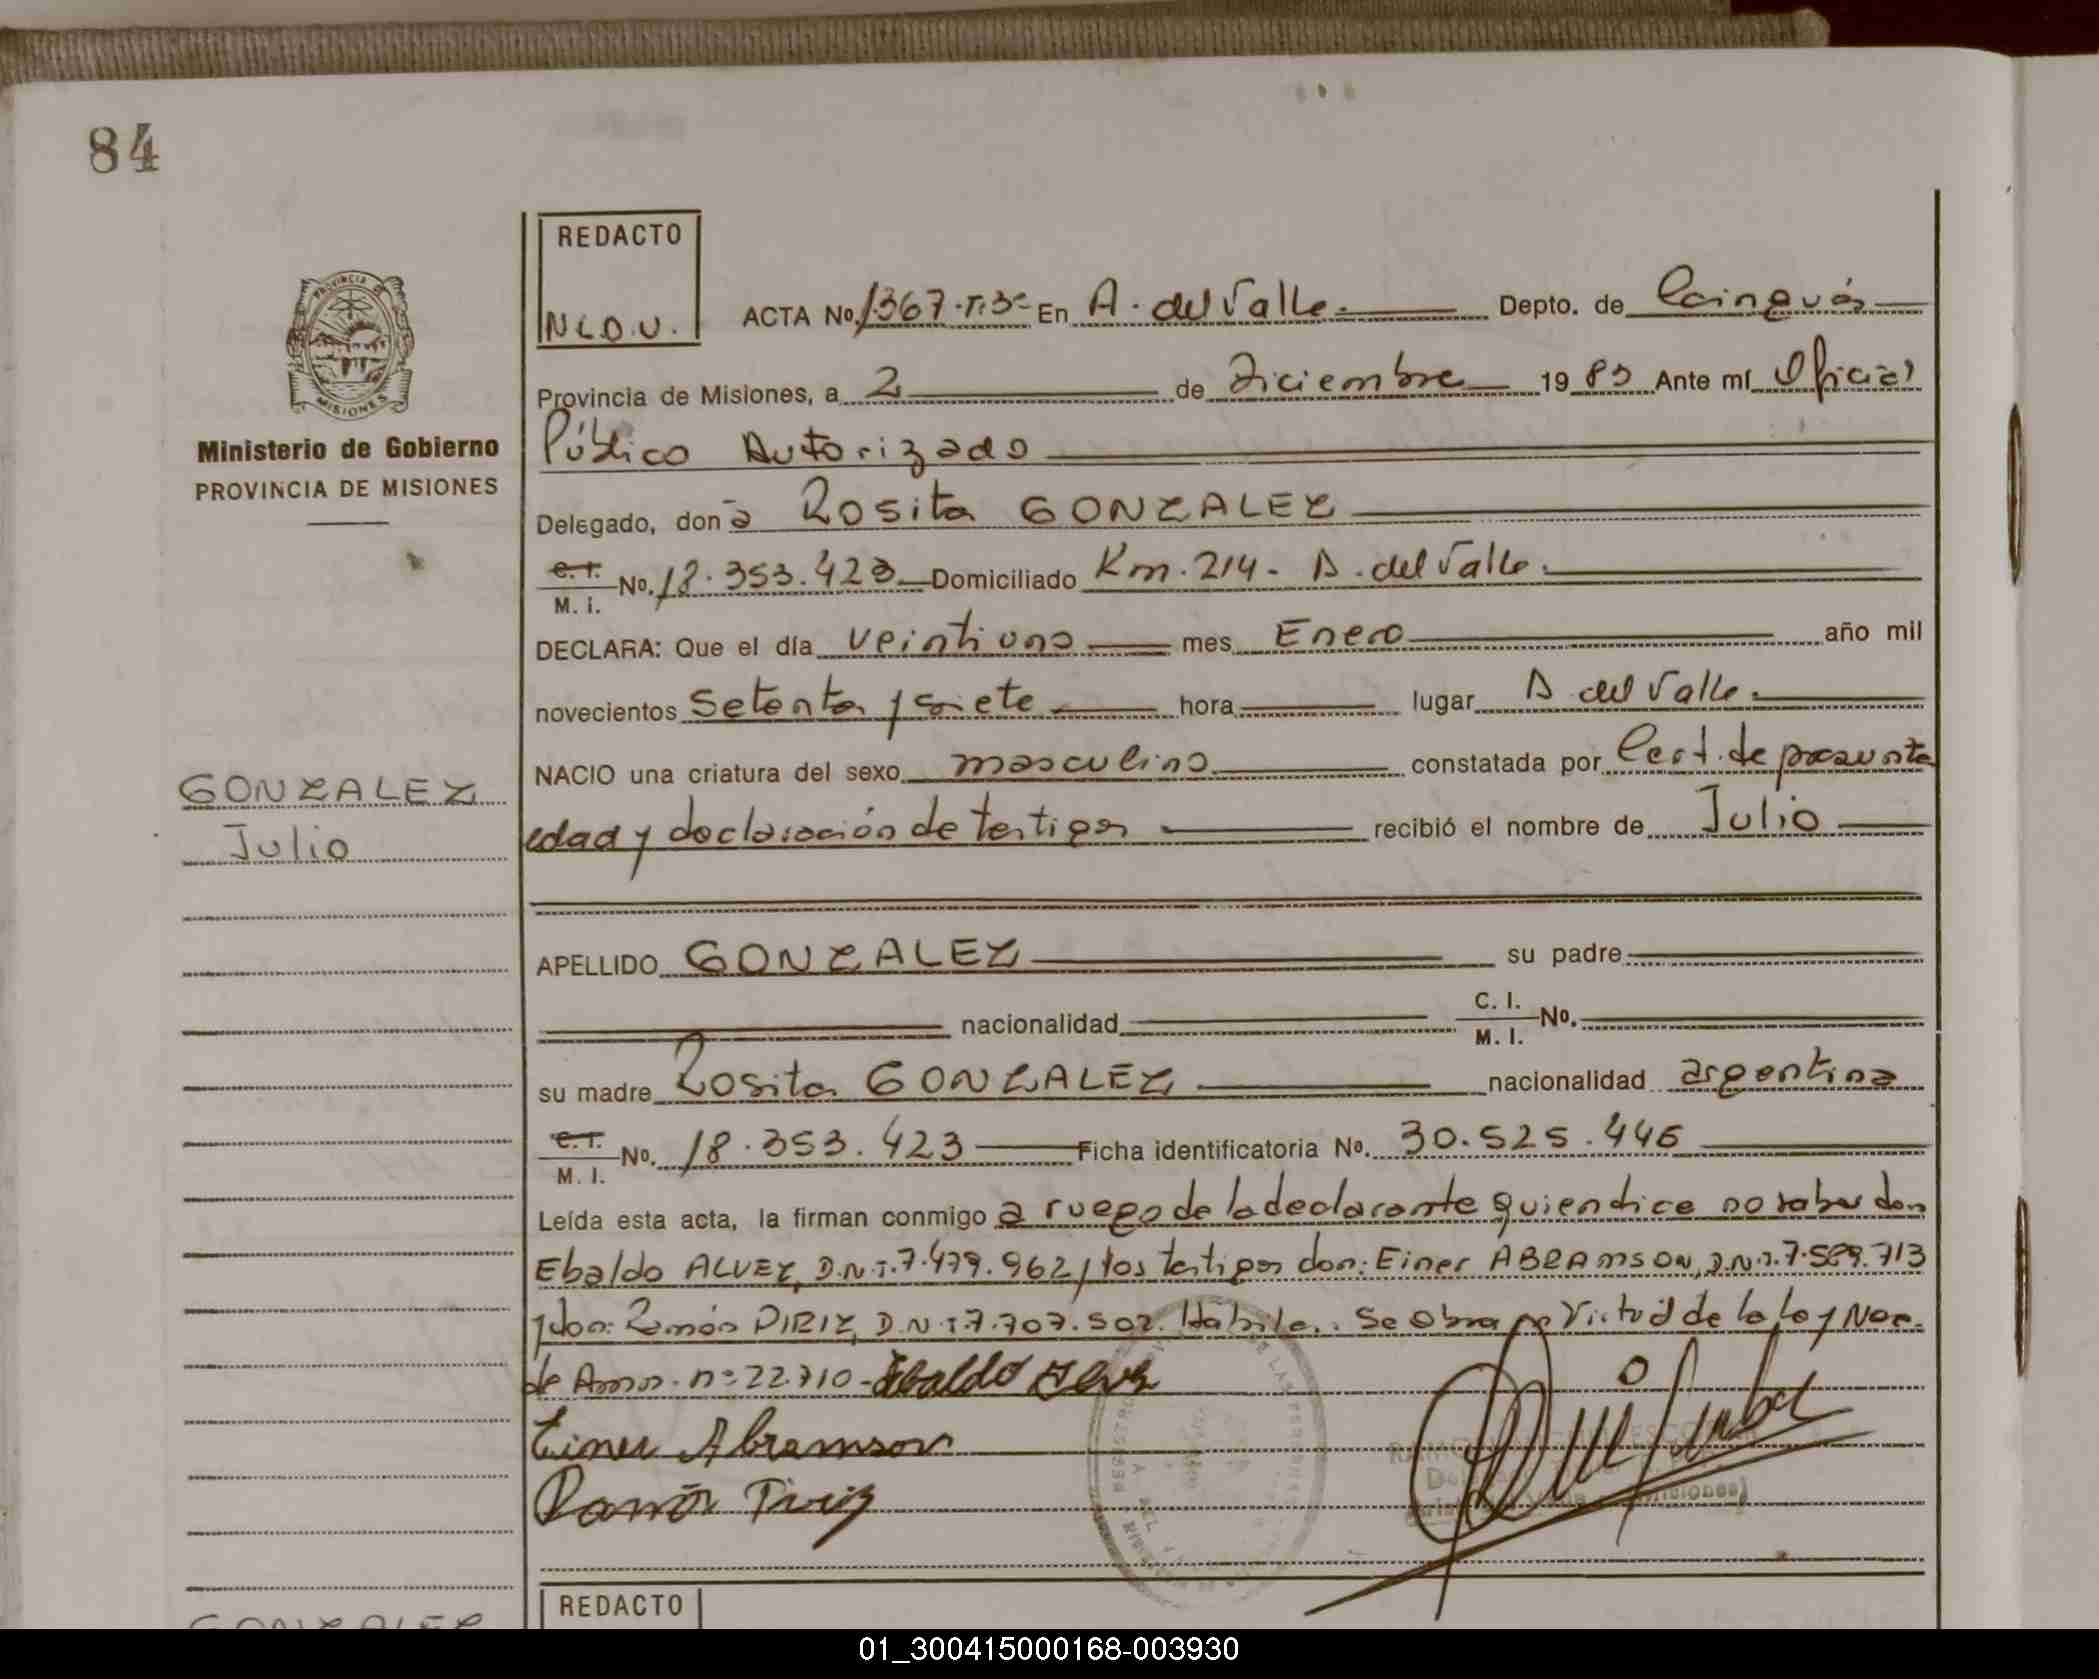 84
REDACTO
N.L.O.U.
ACTA No. 1.367.T.3º En A. del Valle. Depto. de Cainguás
Provincia de Misiones, a 2 de Diciembre 1983 Ante mí Oficial
Público Autorizado
Delegado, don a Rosita GONZALEZ
C. I. M. I. No. 18.353.423 Domiciliado Km. 214 - A. del Valle.
DECLARA: Que el día veintiuno mes Enero año mil
novecientos Setenta y siete hora lugar A del Valle.
NACIO una criatura del sexo masculino constatada por Cert. de presunta
edad y declaración de testigos recibió el nombre de Julio
APELLIDO GONZALEZ su padre
nacionalidad C. I. M. I. No.
su madre Rosita GONZALEZ nacionalidad argentina
C. I. M. I. No. 18.353.423 Ficha identificatoria No. 30.525.446
Leída esta acta, la firman conmigo a ruego de la declarante quien dice no saber don
Ebaldo ALVEZ, D.N.I. 7.479.962 y los testigos don: Einer ABRAMSON, D.N.I. 7.589.713
y don: Ramón PIRIZ, D.N.I. 7.707.502. Hábiles. Se Obra en Virtud de la Ley Nac.
de Amn. nº 22.710 - Ebaldo Alvez
Einer Abramson
Ramón Piriz
REDACTO
PROVINCIA DE
MISIONES
Ministerio de Gobierno
PROVINCIA DE MISIONES
GONZALEZ
Julio
GONZALEZ
01_300415000168-003930